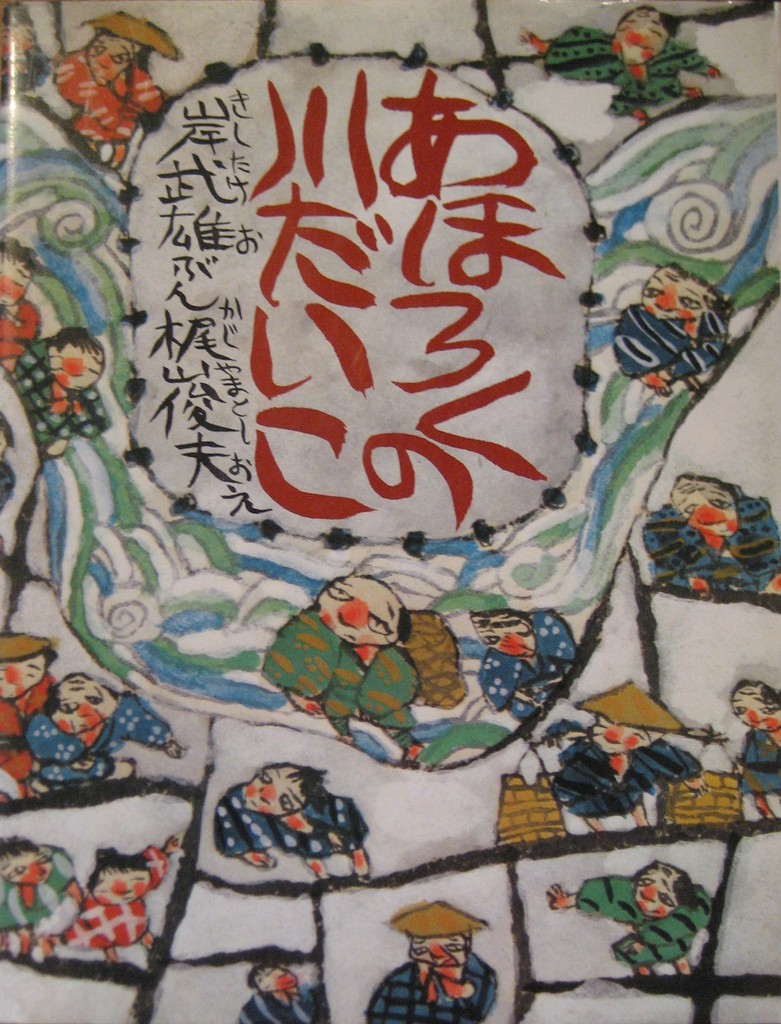 あほろくの
川だいこ
岸武雄ぶん梶山俊夫え
きしたけお かじやまとしお